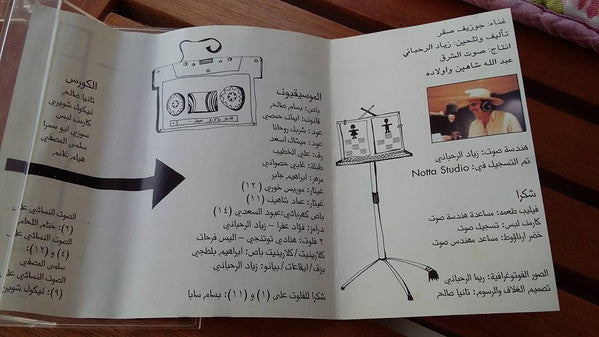 غناء: جوزيف صقر
تأليف وتلحين: زياد الرحباني
انتاج: صوت الشرق
عبد الله شاهين واولاده
هندسة صوت: زياد الرحباني
تم التسجيل في: Notta Studio
شكرا
فيليب طعمه: مساعدة هندسة صوت
كارمن لبس: تسجيل صوت
خضر ارناؤوط: مساعد مهندس صوت
الصور الفوتوغرافية: ريما الرحباني
تصميم الغلاف والرسوم: تانيا صالح
الموسيقيون
باص: بسام صالح
قانون: ايمان حمصي
عود: شربل روحانا
عود: ميشال اسعد
رق: علي الخطيب
طبلة: غابي حصواني
مزهر: ابراهيم جابر
غيتار: موريس خوري (١٢)
غيتار: عماد شاهين (١١)
باص كهربائي: عبود السعدي (١٤)
درامز: فؤاد عفرا - زياد الرحباني
٢ فلوت: هنادي توتنجي - اليس فرحات
كلارينيت / كلارينيت باص: ابراهيم بلطجي
بزق / ايقاعات / بيانو: زياد الرحباني
شكرا للفلوت على (١) و (١١): بسام سابا
الكورس
تانيا صالح
نيكول شويري
كارمن لبس
سوزي ابو سمرا
سلمى المصفي
هيام غانم
الصوت النسائي على
(٢): ختام اللحام
الصوت النسائي على
(٤) و (١٢):
سلمى المصفي
الصوت النسائي على
(٩): نيكول شويري